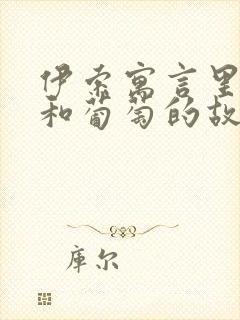 伊索寓言里
和葡萄的故
库尔